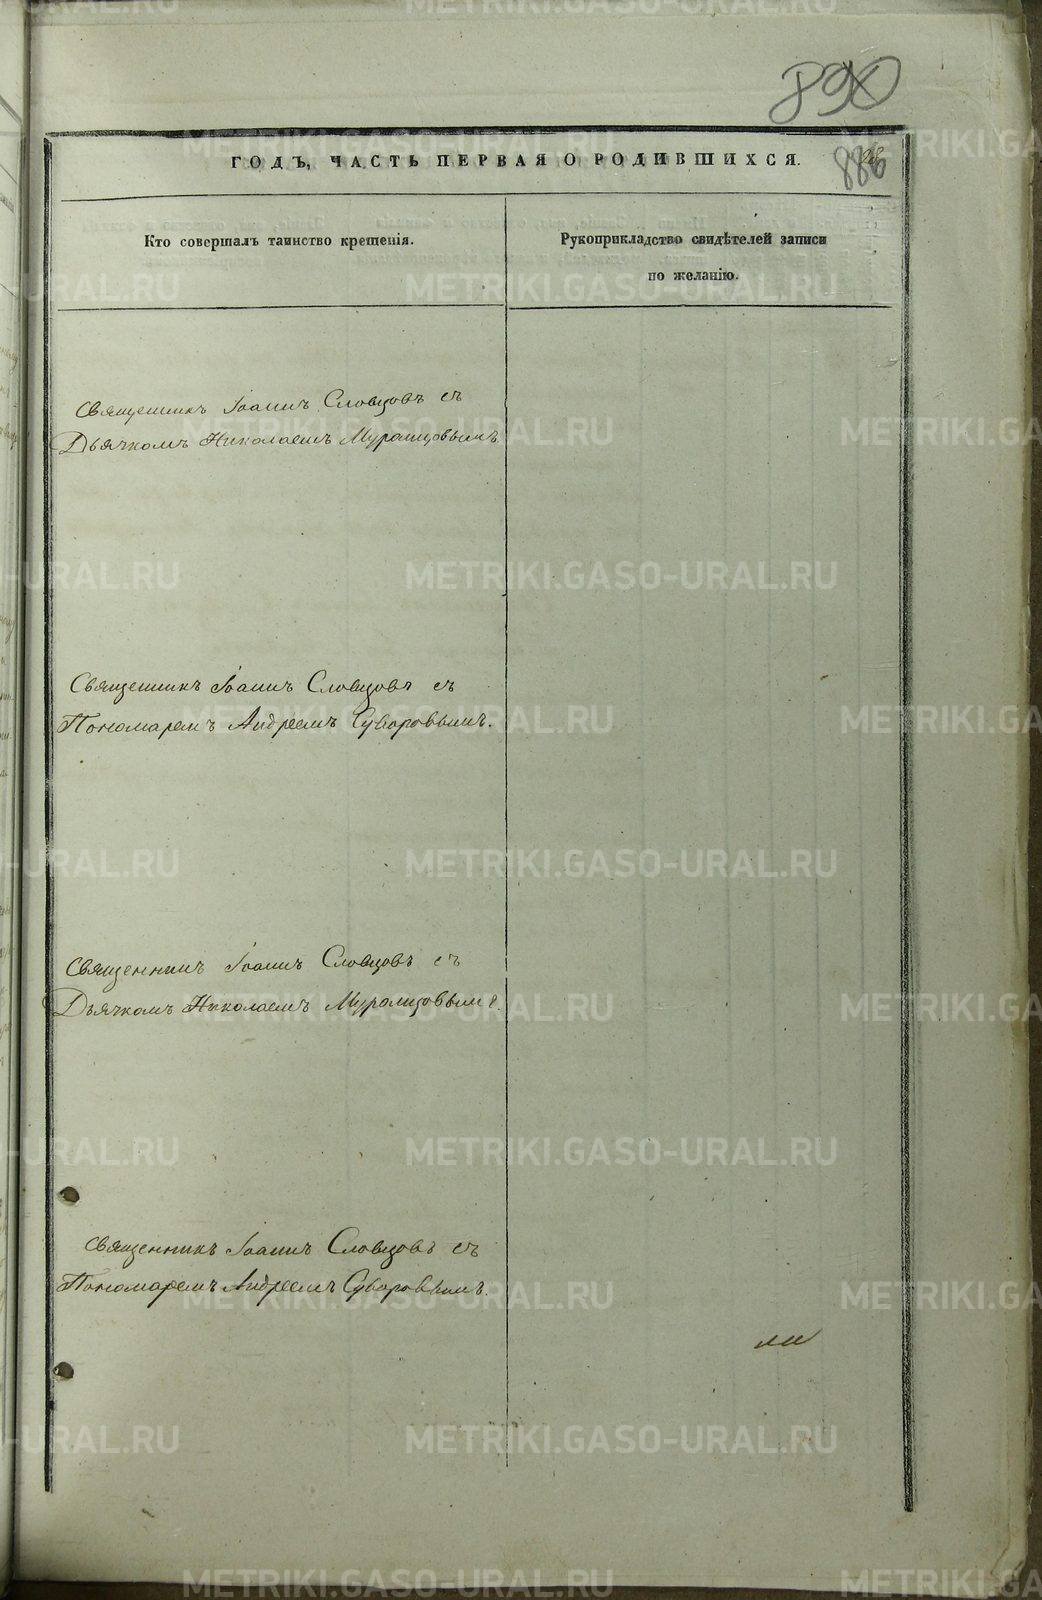 890
886
ГОДЪ, ЧАСТЬ ПЕРВАЯ О РОДИВШИХСЯ.
Кто совершалъ таинство крещенія.
Рукоприкладство свидѣтелей записи
по желанію.
Священникъ Іоаннъ Словцовъ съ
Дьячкомъ Николаемъ Мурзинцовымъ
Священникъ Іоаннъ Словцовъ съ
Пономаремъ Андреемъ Суворовымъ.
Священникъ Іоаннъ Словцовъ съ
Дьячкомъ Николаемъ
Священникъ Іоаннъ Словцовъ съ
Пономаремъ Андреемъ Суворовымъ.
METRIKI.GASO-URAL.RU